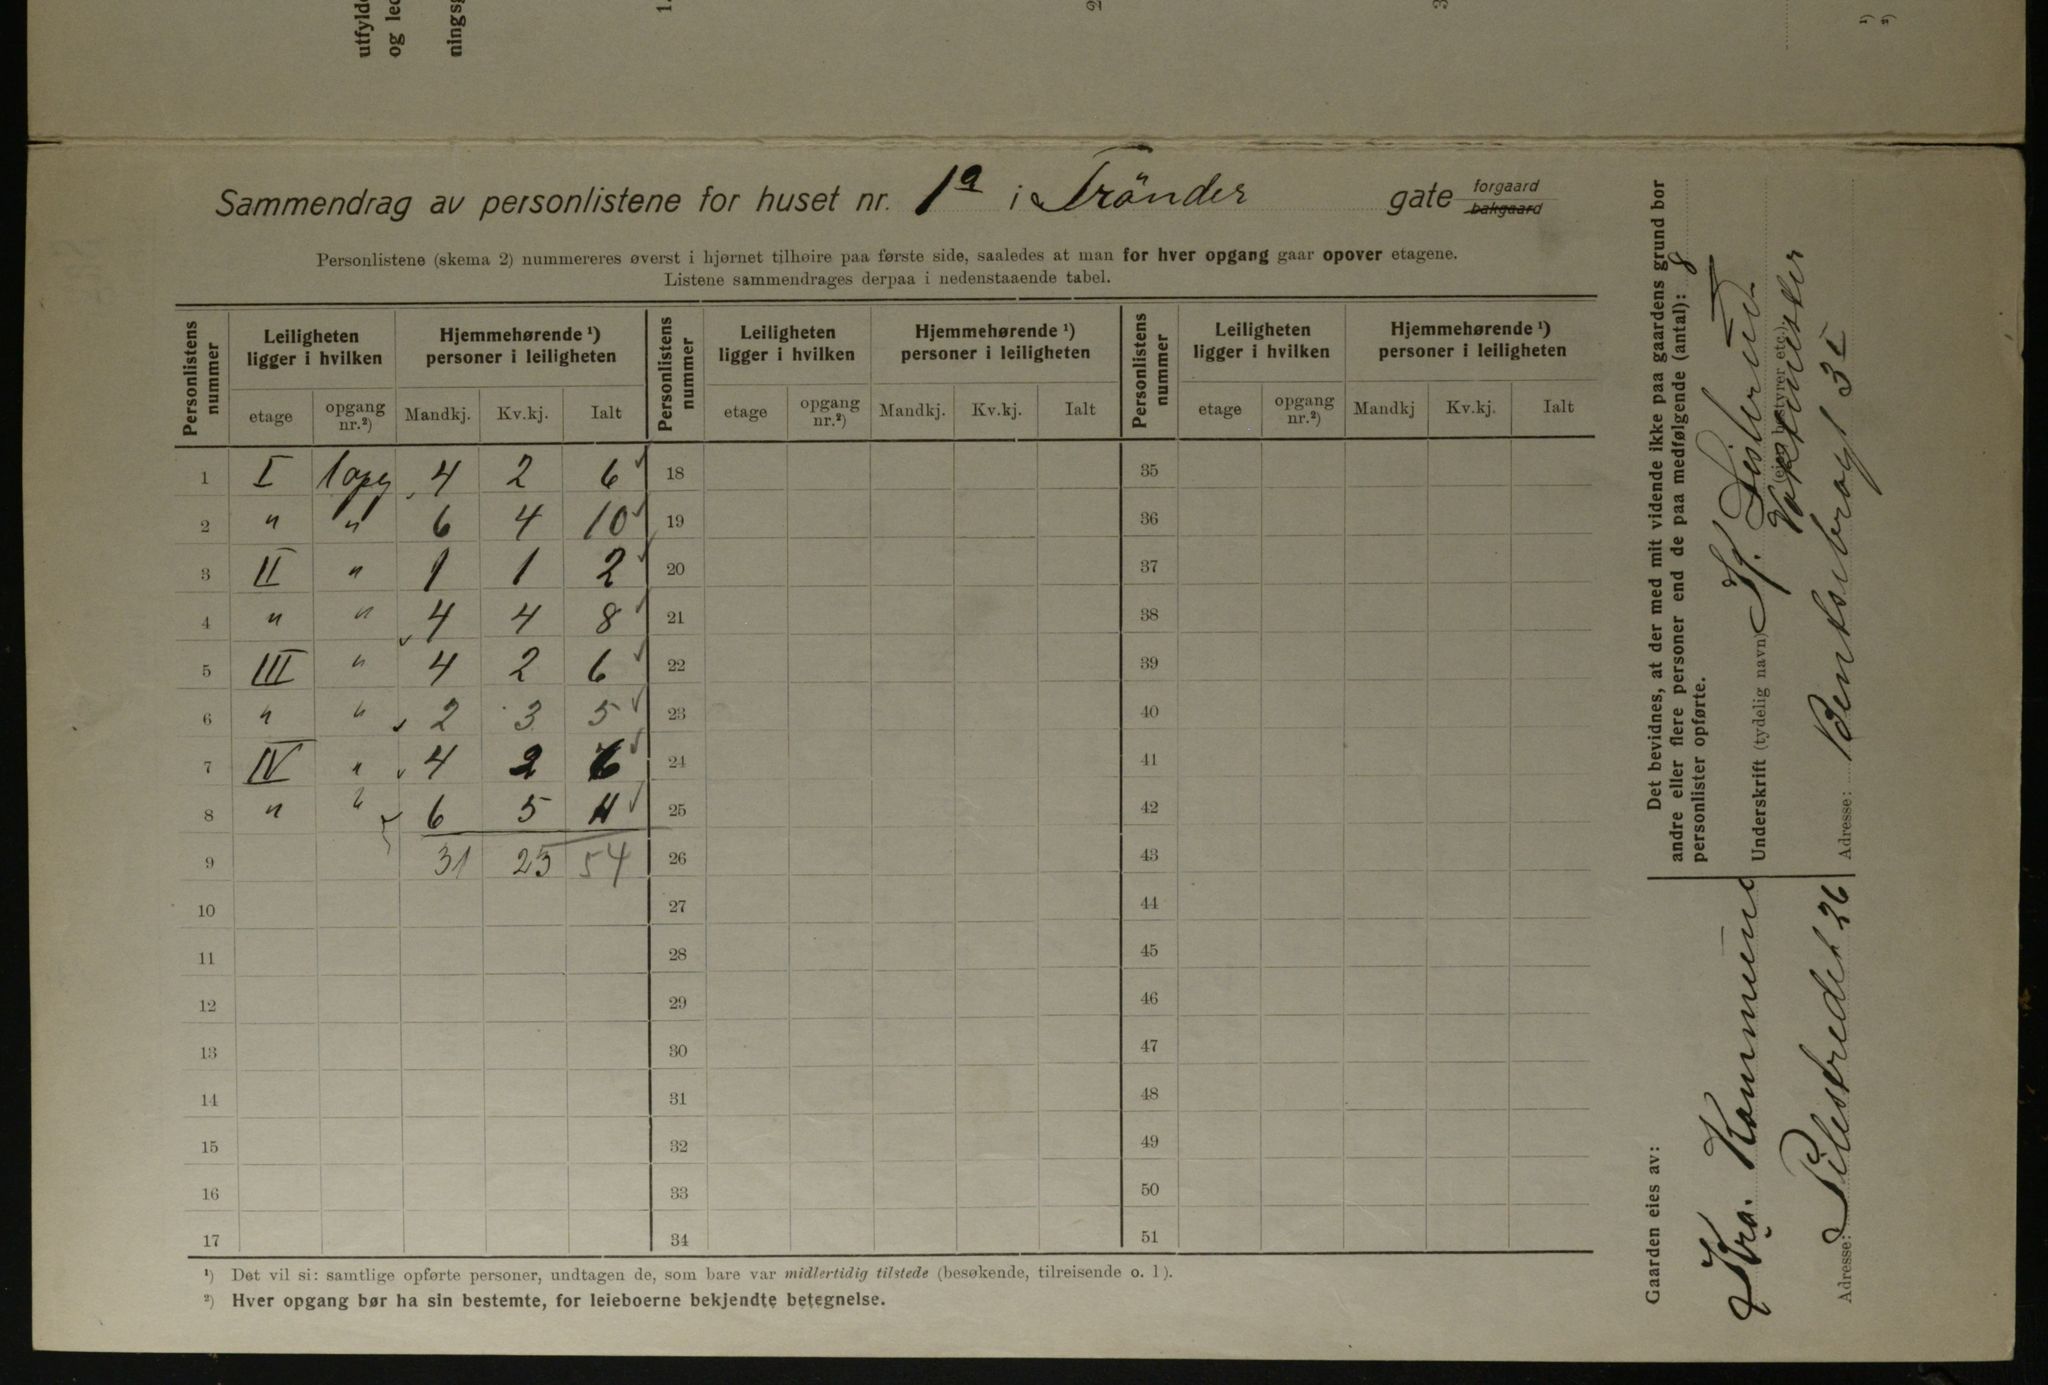 utfylde
og led
ningsg
1.
2
3
¹)
²)
Sammendrag av personlistene for huset nr. 1a i Trönder gate forgaard
bakgaard
Personlistene (skema 2) nummereres øverst i hjørnet tilhøire paa første side, saaledes at man for hver opgang gaar opover etagene.
Listene sammendrages derpaa i nedenstaaende tabel.
Personlistens nummer | Leiligheten ligger i hvilken | Hjemmehørende ¹) personer i leiligheten | Personlistens nummer | Leiligheten ligger i hvilken | Hjemmehørende ¹) personer i leiligheten | Personlistens nummer | Leiligheten ligger i hvilken | Hjemmehørende ¹) personer i leiligheten
etage | opgang nr.²) | Mandkj. | Kv.kj. | Ialt | etage | opgang nr.²) | Mandkj. | Kv.kj. | Ialt | etage | opgang nr.²) | Mandkj | Kv.kj. | Ialt
1 I 1 opg 4 2 6 18 35
2 " " 6 4 10 19 36
3 II " 1 1 2 20 37
4 " " 4 4 8 21 38
5 III " 4 2 6 22 39
6 " " 2 3 5 23 40
7 IV " 4 2 6 24 41
8 " " 6 5 11 25 42
9 31 23 54 26 43
10 27 44
11 28 45
12 29 46
13 30 47
14 31 48
15 32 49
16 33 50
17 34 51
¹) Det vil si: samtlige opførte personer, undtagen de, som bare var midlertidig tilstede (besøkende, tilreisende o. l).
²) Hver opgang bør ha sin bestemte, for leieboerne bekjendte betegnelse.
Det bevidnes, at der med mit vidende ikke paa gaardens grund bor
andre eller flere personer end de paa medfølgende (antal): 8
personlister opførte.
Underskrift (tydelig navn) H.
(eier, bestyrer etc.) Vaktmester
Adresse: Bentsebrogt 3 I
Gaarden eies av:
Kra. Kommune
Adresse: Pilestredet 26